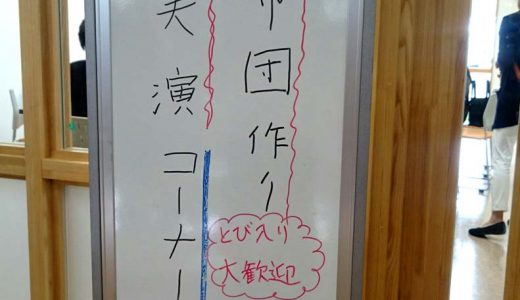 布団作り
実演コーナー
とび入り
大歓迎